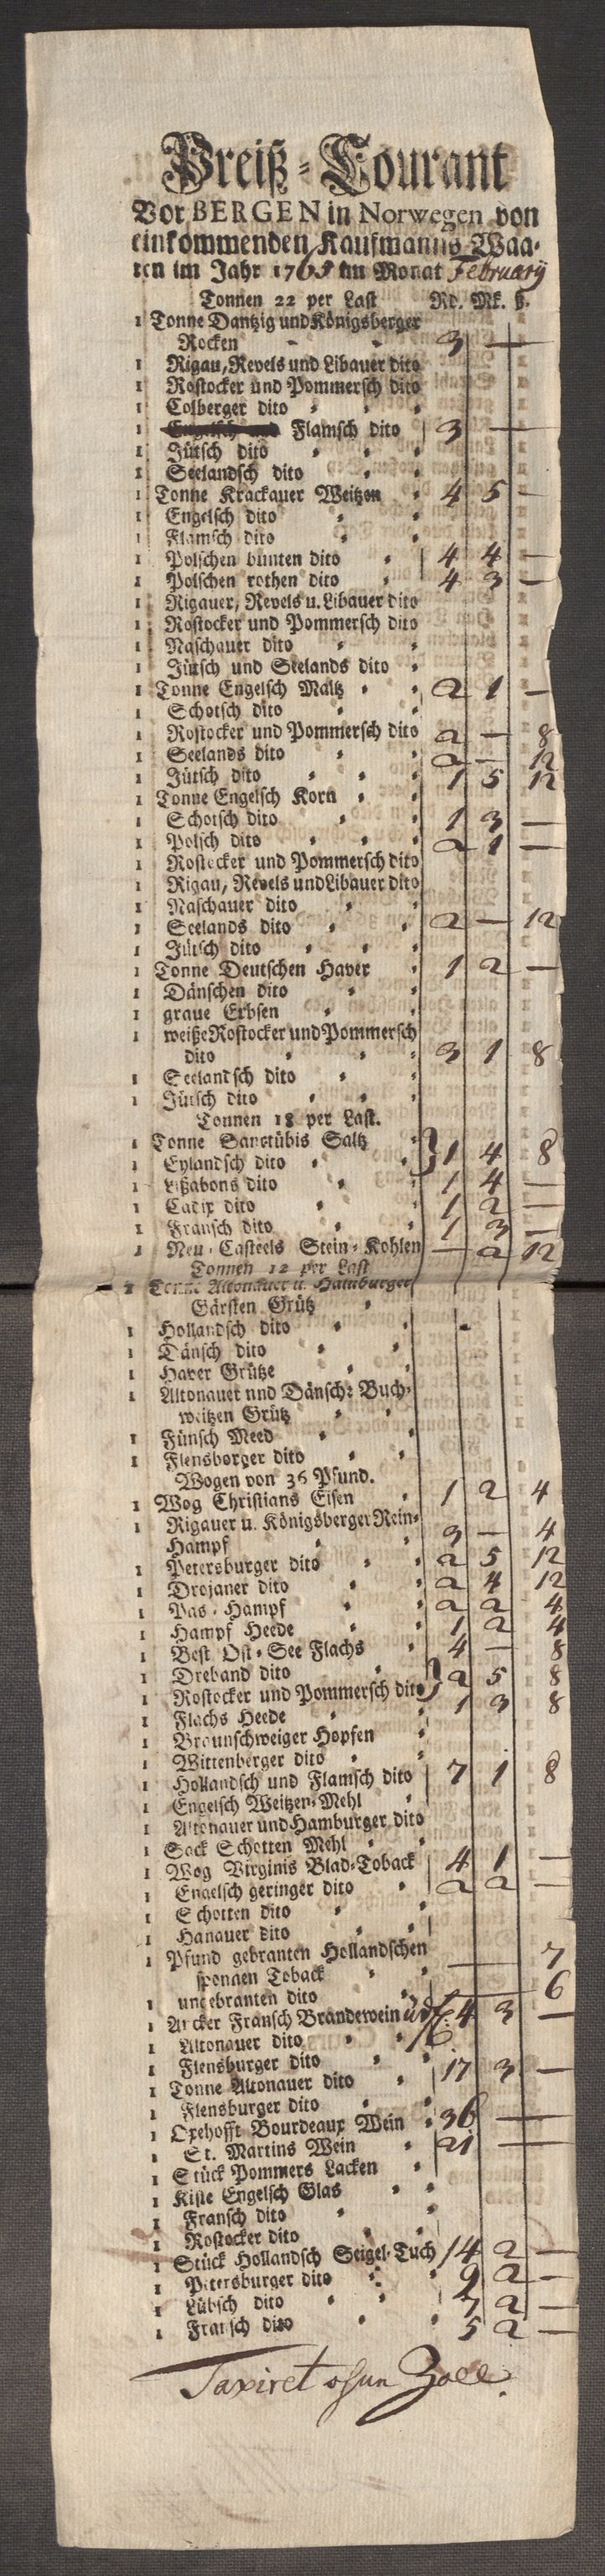 Preiß-Courant
Vor BERGEN in Norwegen von
einkommenden Kaufmanns-Waa-
ren im Jahr 1765 im Monat Februarij
Tonnen 22 per Last Rd. Mk. ß.
1 Tonne Dantzig und Königsberger
Rocken 3 —
1 Rigau, Revels und Libauer dito
1 Rostocker und Pommersch dito
1 Colberger dito
1 Flamsch dito 3 —
1 Jütsch dito
1 Seelandsch dito
1 Tonne Krackauer Weitzen 4 5 —
1 Engelsch dito
1 Flamsch dito
1 Polschen bunten dito 4 4 —
1 Polschen rothen dito 4 3 —
1 Rigauer, Revels u. Libauer dito
1 Rostocker und Pommersch dito
1 Naschauer dito
1 Jütsch und Seelands dito
1 Tonne Engelsch Maltz 2 1 —
1 Schotsch dito
1 Rostocker und Pommersch dito 2 — 8
1 Seelands dito 2 — 12
1 Jütsch dito 1 5 12
1 Tonne Engelsch Korn
1 Schotsch dito 1 3 —
1 Polsch dito 2 1 —
1 Rostocker und Pommersch dito
1 Rigau, Revels und Libauer dito
1 Naschauer dito
1 Seelands dito 2 — 12
1 Jütsch dito
1 Tonne Deutschen Haver 1 2 —
1 Dänschen dito
1 graue Erbsen
1 weiße Rostocker und Pommersch
dito 3 1 8
1 Seelandsch dito
1 Jütsch dito
Tonnen 18 per Last.
1 Tonne Sanctübis Saltz
1 Eylandsch dito } 1 4 8
1 Lißabons dito 1 4 —
1 Cadix dito 1 2 —
1 Fransch dito 1 3 —
1 Neu-Casteels Stein-Kohlen — 2 12
Tonnen 12 per Last
1 Tonne Altonauer u. Hamburger
Gärsten Grütz
1 Hollandsch dito
1 Dänsch dito
1 Haver Grütze
1 Altonauer und Dänsch: Buch-
weitzen Grütz
1 Fünsch Meed
1 Flensborger dito
Wogen von 36 Pfund.
1 Wog Christians Eisen 1 2 4
1 Rigauer u. Königsberger Rein-
Hampf 3 — 4
1 Petersburger dito 2 5 12
1 Drojaner dito 2 4 12
1 Pas-Hampf 2 2 4
1 Hampf Heede 1 2 4
1 Best Ost-See Flachs 4 — 8
1 Dreband dito
1 Rostocker und Pommersch dito } 2 5 8
1 Flachs Heede 1 3 8
1 Braunschweiger Hopfen
1 Wittenberger dito
1 Hollandsch und Flamsch dito 7 1 8
1 Engelsch Weitzen-Mehl
1 Altonauer und Hamburger dito
1 Sack Schotten Mehl
1 Wog Virginis Blad-Toback 4 1 —
1 Engelsch geringer dito 2 2 —
1 Schotten dito
1 Hanauer dito
1 Pfund gebranten Hollandschen
sponnen Toback — 7
1 ungebranten dito — 6
1 Ancker Fransch Brandewein 4 3 —
1 Altonauer dito
1 Flensburger dito
1 Tonne Altonauer dito 17 3 —
1 Flensburger dito
1 Oxehofft Bourdeaux Wein 36 —
1 St. Martins Wein 21 —
1 Stück Pommers Lacken
1 Kiste Engelsch Glas
1 Fransch dito
1 Rostocker dito
1 Stück Hollandsch Seigel-Tuch 14 2 —
1 Petersburger dito 9 2 —
1 Lübsch dito 7 2 —
1 Fransch dito 5 2 —
Taxiret ohun Zoll.